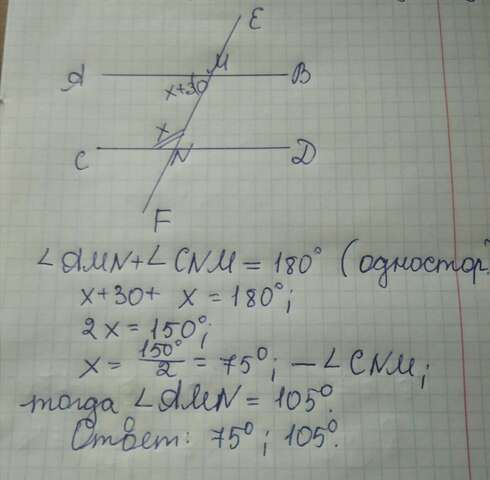 E
A M B
x+30
x
C N D
F
∠AMN+∠CNM = 180° (одностор.
x+30+ x = 180°;
2x = 150°;
x = 150°/2 = 75°; – ∠CNM;
тогда ∠AMN = 105°.
Ответ: 75°; 105°.